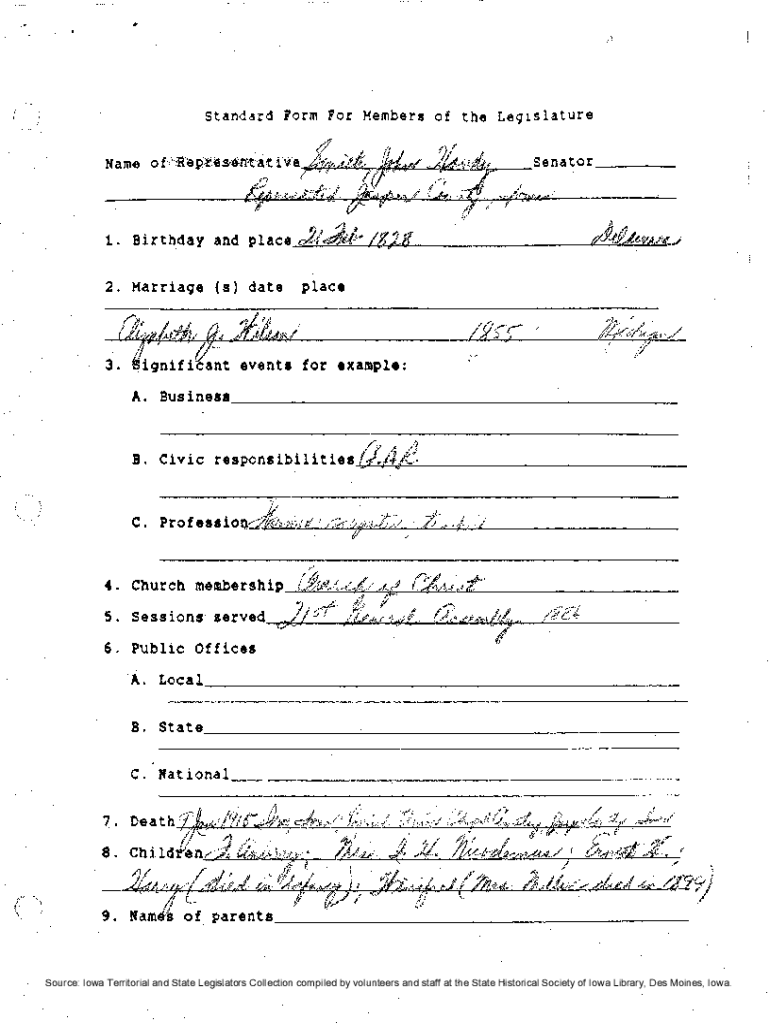 Standard Form For Members of the Legislature
Name of Representative Smith, John Hardy Senator
Represented Jasper County, Iowa
1. Birthday and place 21 Feb 1828 Delaware
2. Marriage (s) date place
Elizabeth J. Wilson 1855 Michigan
3. Significant events for example:
A. Business
B. Civic responsibilities G.A.R.
C. Profession
4. Church membership Church of Christ
5. Sessions served 21st General Assembly 1886
6. Public Offices
A. Local
B. State
C. National
7. Death 9 Jan 1915
8. Children Mrs. Nicodemus; Ernest H.;
Harry (died in infancy); Winifred (Mrs. Miller died in 1899)
9. Names of parents
Source: Iowa Territorial and State Legislators Collection compiled by volunteers and staff at the State Historical Society of Iowa Library, Des Moines, Iowa.